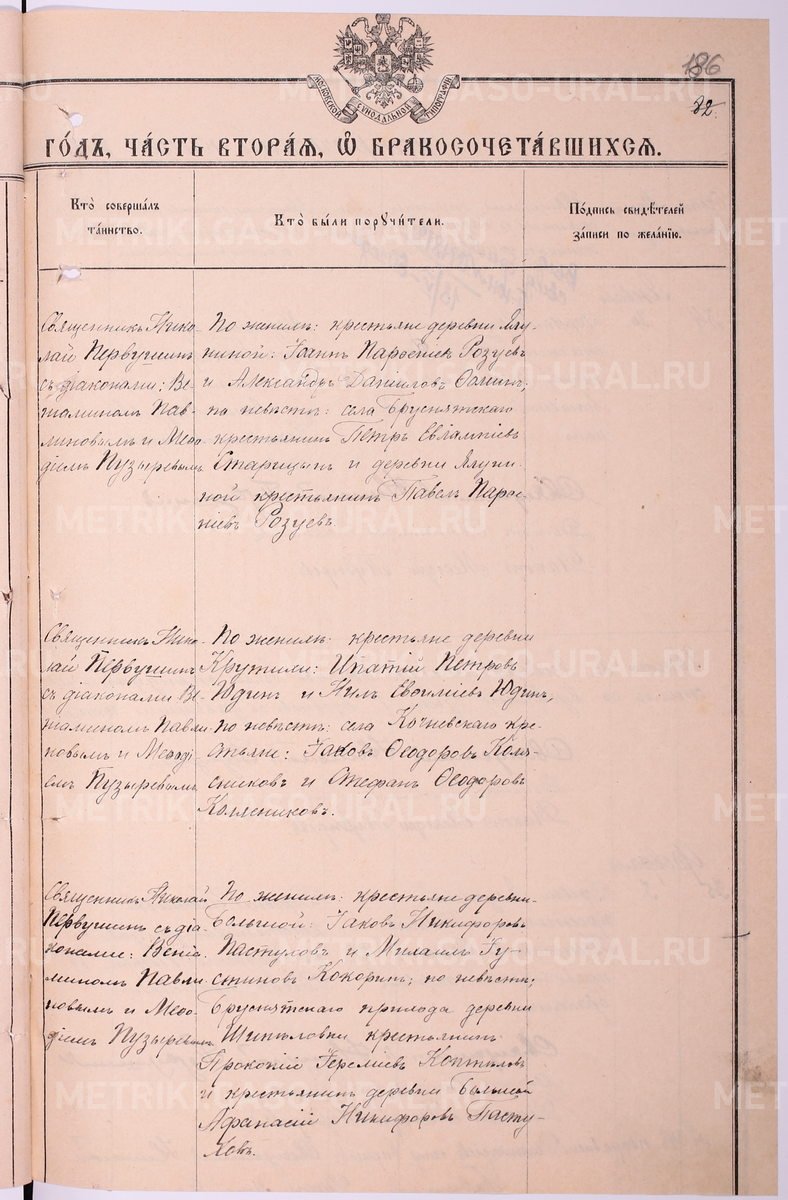 МОСКОВСКОЙ СѴНОДАЛЬНОЙ ТИПОГРАФІИ
186
32.
ГО́ДЪ, ЧА́СТЬ ВТОРА́Я, Ѡ҆ БРАКОСОЧЕТА́ВШИХСЯ.
Кто̀ соверша́лъ
та́инство.
Кто̀ бы́ли порꙋчи́тели.
По́дпись свидѣ́телей
за́писи по жела́нїю.
Священникъ Нико-
лай Первушинъ
съ діаконами: Ве-
ніаминомъ Пав-
линовымъ и Меѳо-
діемъ Пузыревымъ
По женихѣ: крестьяне деревни Ялу-
ниной: Іоаннъ Парѳеніевъ Розуевъ
и Александръ Даніиловъ
по невѣстѣ: села Бруснятскаго
крестьянинъ Петръ Евлампіевъ
Старицынъ и деревни Ялуни-
ной крестьянинъ Павелъ Парѳе-
ніевъ Розуевъ.
Священникъ Нико-
лай Первушинъ
съ діаконами Ве-
ніаминомъ Павли-
новымъ и Меѳоді-
емъ Пузыревымъ
По женихѣ: крестьяне деревни
Крутихи: Ипатій Петровъ
Юдинъ и Нилъ Евѳиміевъ Юдинъ,
по невѣстѣ: села Кочневскаго кре-
стьяне: Іаковъ Ѳеодоровъ Коля-
сниковъ и Стефанъ Ѳеодоровъ
Колясниковъ.
Священникъ Николай
Первушинъ съ діа-
конами: Веніа-
миномъ Павли-
новымъ и Меѳо-
діемъ Пузыревымъ.
По женихѣ: крестьяне деревни
Большой: Іаковъ Никифоровъ
Пастуховъ и Михаилъ Іу-
стиновъ Кокоринъ; по невѣстѣ:
Бруснятскаго прихода деревни
Шипѣловки крестьянинъ
Прокопій Іереміевъ Коптяловъ
и крестьянинъ деревни Большой
Аѳанасій Никифоровъ Пасту-
ховъ.
METRIKI.GASO-URAL.RU